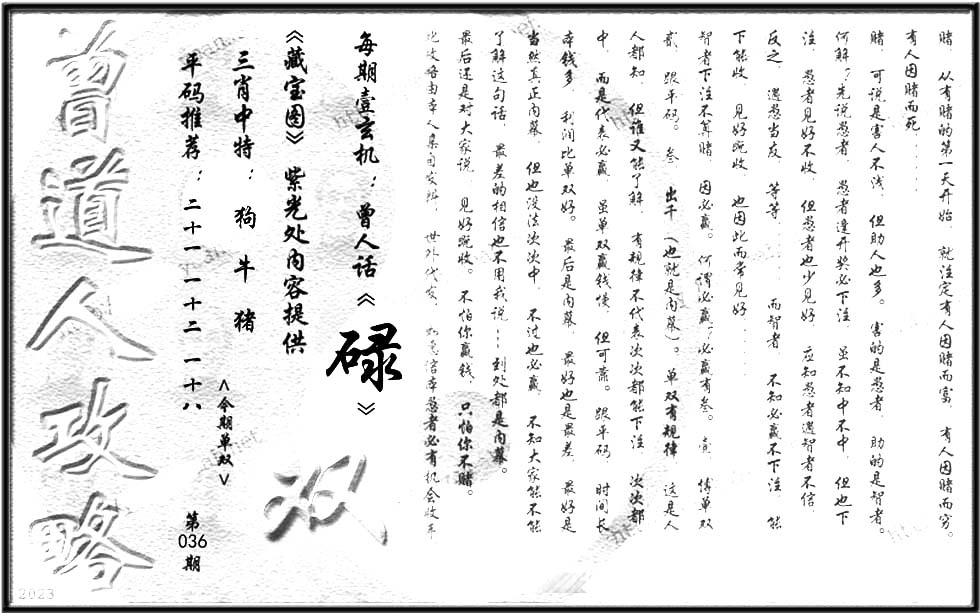 赌， 从有赌的第一天开始， 就注定有人因赌而富， 有人因赌而穷。
有人因赌而死......
赌， 可说是害人不浅， 但助人也多。 害的是愚者， 助的是智者。
何解？先说愚者， 愚者逢开奖必下注， 虽不知中不中， 但也下
注， 愚者见好不收， 但愚者也少见好， 应知愚者遇智者不信，
反之， 遇愚当友， 等等...... 而智者， 不知必赢不下注， 能
下能收， 见好就收， 也因此而常见好......
智者下注不算赌， 因必赢。 何谓必赢？必赢有叁。 壹， 博单双
贰， 跟平码。 叁， 出千（也就是内幕）。 单双有规律， 这是人
人都知， 但谁又能了解， 有规律不代表次次都能下注， 次次都
中， 而是代表必赢， 虽单双赢钱慢， 但可靠。 跟平码， 时间长，
本钱多， 利润比单双好。 最后是内幕， 最好也是最差， 最好是
当然真正内幕， 但也没法次次中， 不过也必赢， 不知大家能不能
了解这句话， 最差的相信也不用我说...到处都是内幕。
最后还是对大家说， 见好就收。 不怕你赢钱， 只怕你不赌。
此攻略由本人集自发研， 世外代发， 如意信本愚者必有机会收年
每期壹玄机：曾人话《碌》
《藏宝图》紫光处内容提供
三肖中特： 狗 牛 猪
平码推荐：二十一 一十二 一十八
<今期单双>
双
第036期
曾道人攻略
2023